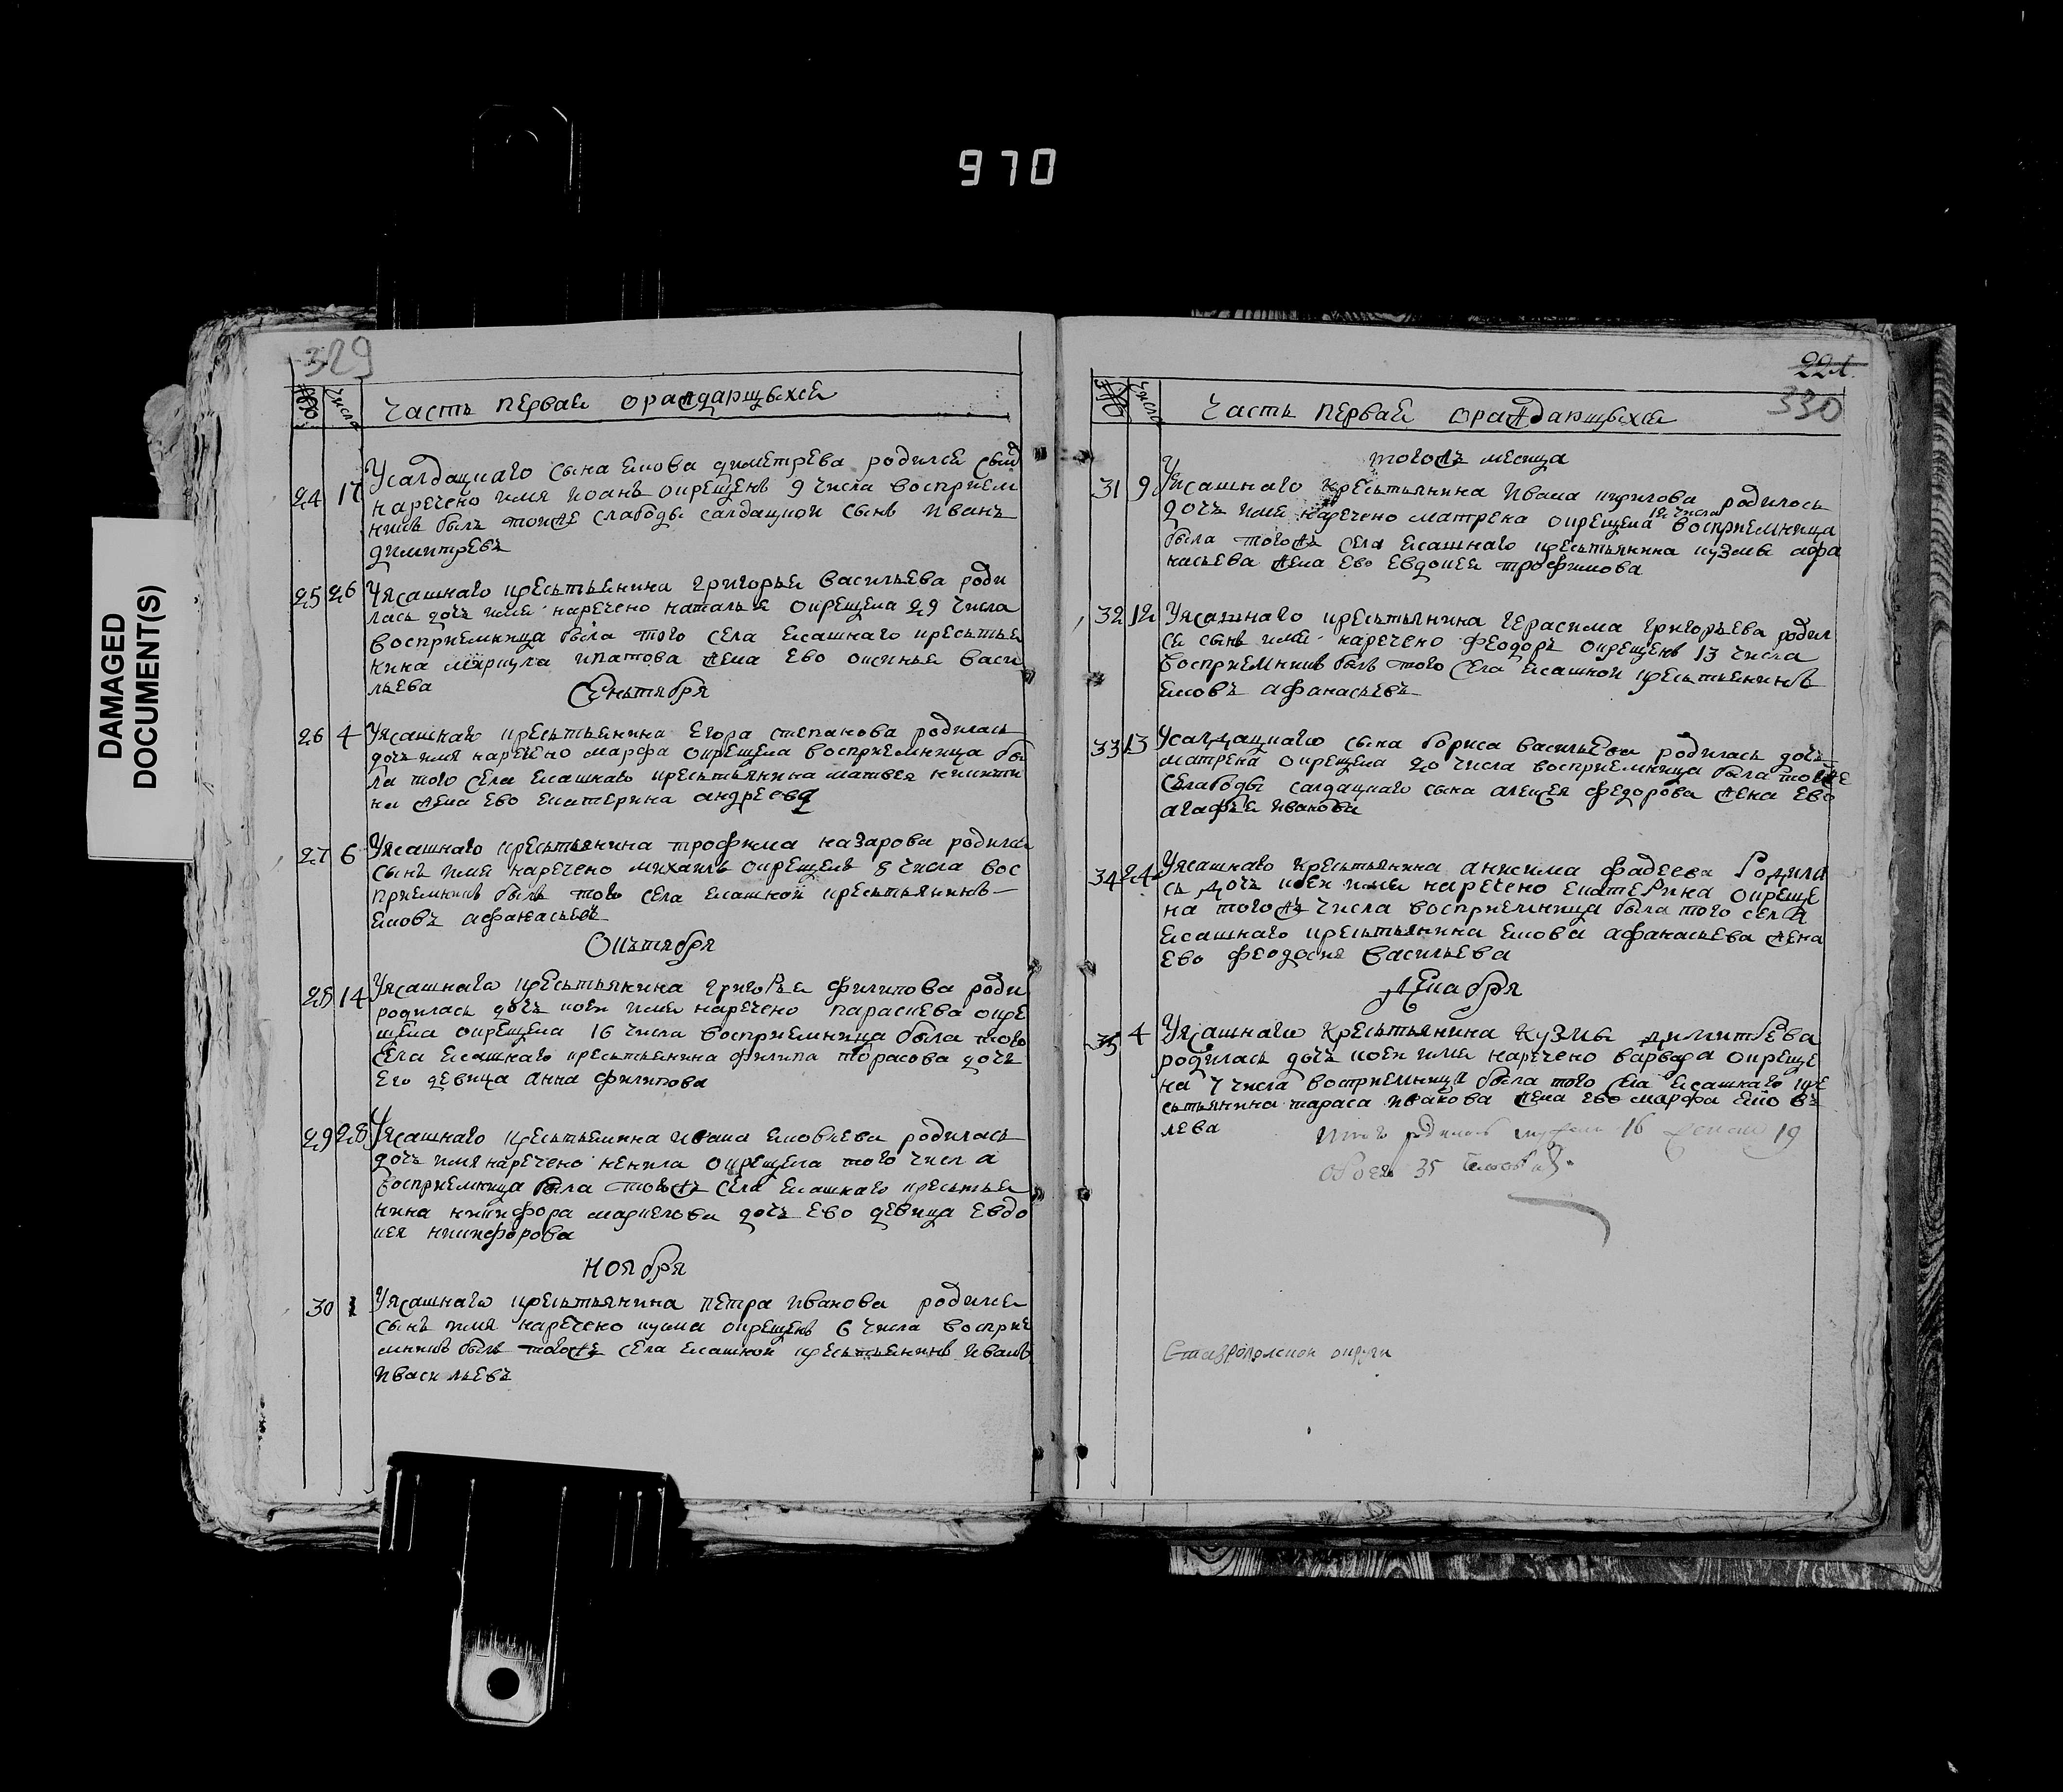 970
DAMAGED
DOCUMENT(S)
329
числа
часть первая ораждающихся
24 17 У салдацкаго сына якова диметрева родился сынъ
наречено имя иоанъ окрещенъ 9 числа восприем
никъ былъ тойже слабоды салдацкой сынъ иванъ
димитревъ
25 26 У ясашнаго крестьянина григорья васильева роди
лась дочь имя наречено наталья окрещена 29 числа
восприемница была того села ясашнаго крестья
нина ипатова жена ево васи
льева
Сеньтября
26 4 У ясашнаго крестьянина егора степанова родилась
дочь имя наречено марфа окрещена восприемница бы
ла того села ясашнаго крестьянина матвея никити
на жена ево екатерина андреева
27 6 У ясашнаго крестьянина трофима назарова родился
сынъ имя наречено михаилъ окрещенъ 8 числа вос
приемникъ былъ того села ясашной крестьянинъ
яковъ афанасьевъ
Октября
28 14 У ясашнаго крестьянина григорья филипова роди
родилась дочь коей имя наречено параскева окре
щена окрещена 16 числа восприемница была того
села ясашнаго крестьянина филипа тарасова дочь
его девица анна филипова
29 28 У ясашнаго крестьянина ивана яковлева родилась
дочь имя наречено ненила окрещена того числа
восприемница была тогожъ села ясашнаго крестья
нина никифора маркелова дочь ево девица евдо
кея никифорова
ноября
30 1 У ясашнаго крестьянина петра иванова родился
сынъ имя наречено кузма окрещенъ 6 числа восприе
мникъ былъ тогоже села ясашной крестьянинъ иванъ
ивасильевъ
221
330
числа
часть первая ораждающихся
тогожъ месяца
31 9 У ясашнаго крестьянина ивана кирилова родилось
дочь имя наречено матрена окрещена 12 числа восприемница
была тогожъ села ясашнаго крестьянина кузмы афа
насьева жена ево евдокея трофимова
32 12 У ясашнаго крестьянина герасима григорьева родил
ся сынъ имя наречено феодоръ окрещенъ 13 числа
восприемникъ былъ того села ясашной крестьянинъ
яковъ афанасьевъ
33 13 У салдацкаго сына бориса васильева родилась дочь
матрена окрещена 20 числа восприемница была тойже
слабоды салдацкаго сына алексея федорова жена ево
агафья иванова
34 24 У ясашнаго крестьянина анисима фадеева родила
сь дочь коей имя наречено екатерина окреще
на тогожъ числа восприемница была того села
ясашнаго крестьянина якова афанасьева жена
ево феодосия васильева
Декабря
35 4 У ясашнаго крестьянина кузмы димитрева
родилась дочь коей имя наречено варвара окреще
на 7 числа восприемница была того села ясашнаго кре
стьянина тараса иванова жена ево марфа яков
лева
Итого 16 19
обоего 35 человекъ
Ставропольской округи